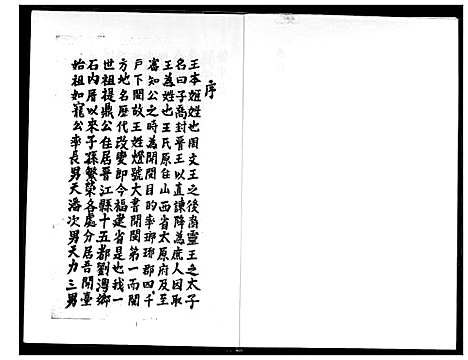 序
王本姬姓也周文王之後嵩靈王之太子
名曰子喬封晋王以直諫降為庶人因取
王為姓也王氏原在山西省太原府及至
審知公之時為開閩目的率瑯琊郡四千
戶下閩故王姓燈號大書開閩第一而閩
方地名歷代改变即今福建省是也我一
世祖提鼎公住居晋江縣十五都劉灣鄉
石内厝以來子孫繁榮各處分居吾開臺
始祖如寵公率長男天潘次男天力三男